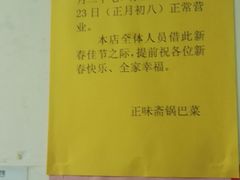 23日（正月初八）正常营
业。
本店全体人员借此新
春佳节之际，提前祝各位新
春快乐、全家幸福。
正味斋锅巴菜